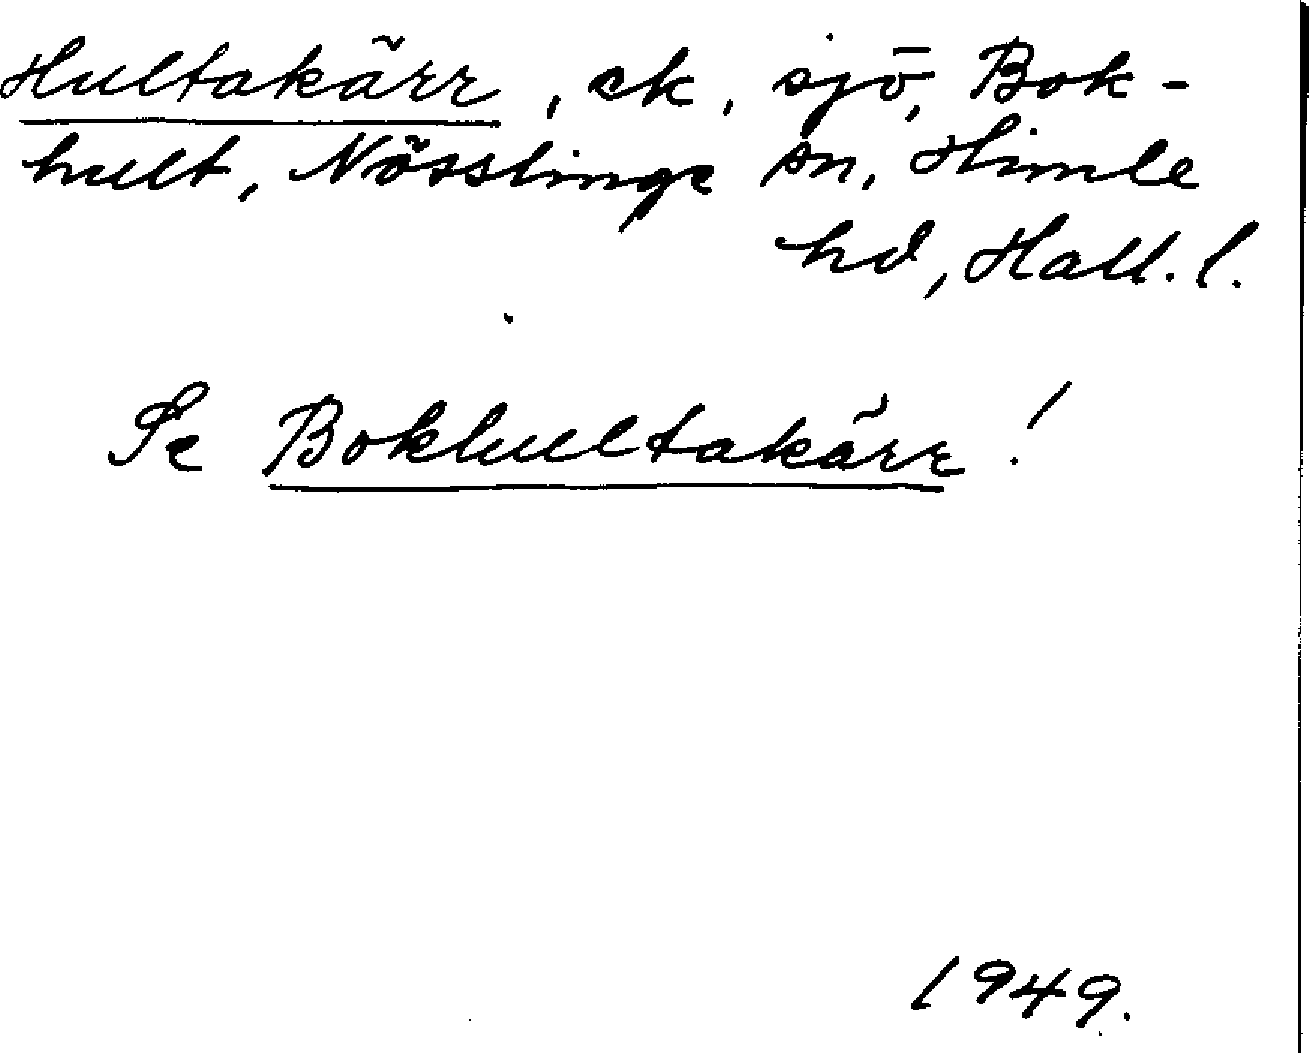 Hultakärr, ek, sjö, Bok-
hult, Nösslinge sn, Himle
hd, Hall. l.
Se Bokhultakärr!
1949.